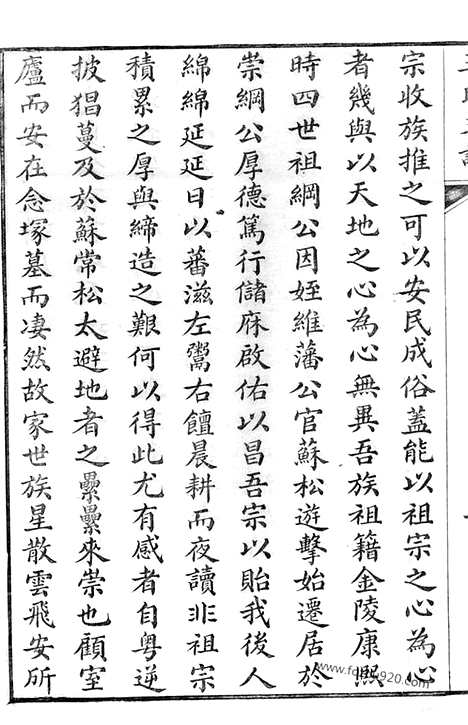 宗收族推之可以安民成俗蓋能以祖宗之心為心
者幾與以天地之心為心無異吾族祖籍金陵康熙
時四世祖綱公因姪維藩公官蘇松遊擊始遷居於
崇綱公厚德篤行儲庥啟佑以昌吾宗以貽我後人
綿綿延延日以蕃滋左鬻右饘晨耕而夜讀非祖宗
積累之厚與締造之艱何以得此尤有感者自粵逆
披猖蔓及於蘇常松太避地者之纍纍來崇也顧室
廬而安在念塚墓而淒然故家世族星散雲飛安所